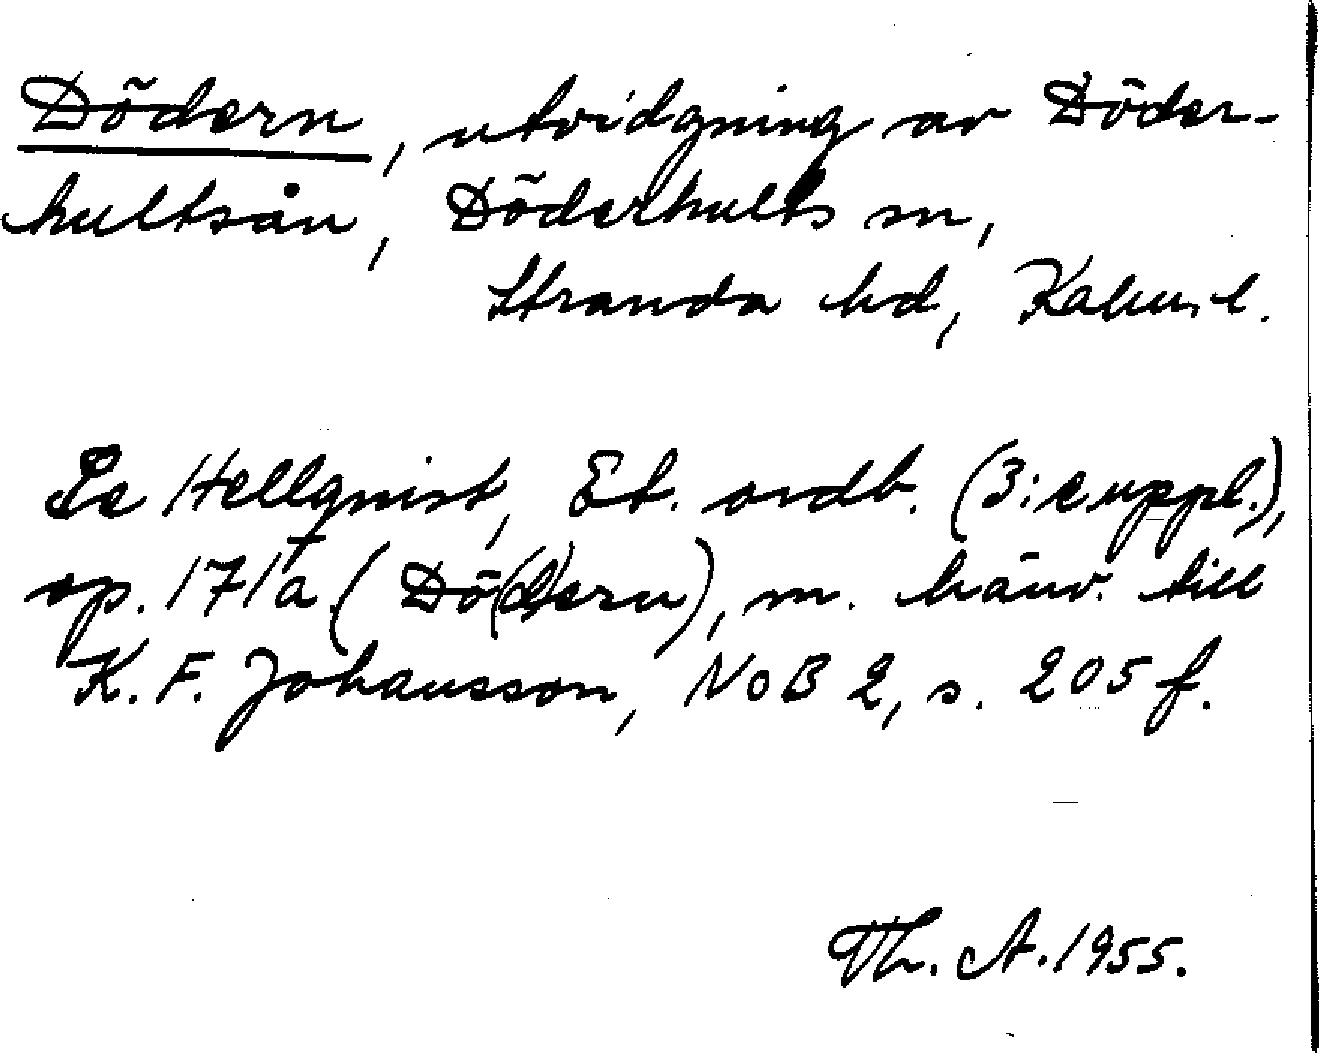 Dödern, utvidgning av Döder-
hultsån, Döderhults sn,
Stranda hd, Kalm. l.
Se Hellquist, Et. ordb. (3:e uppl.),
sp. 171a (Dö(d)ern), m. hänv. till
K. F. Johansson, NoB 2, s. 205 f.
Th. A. 1955.